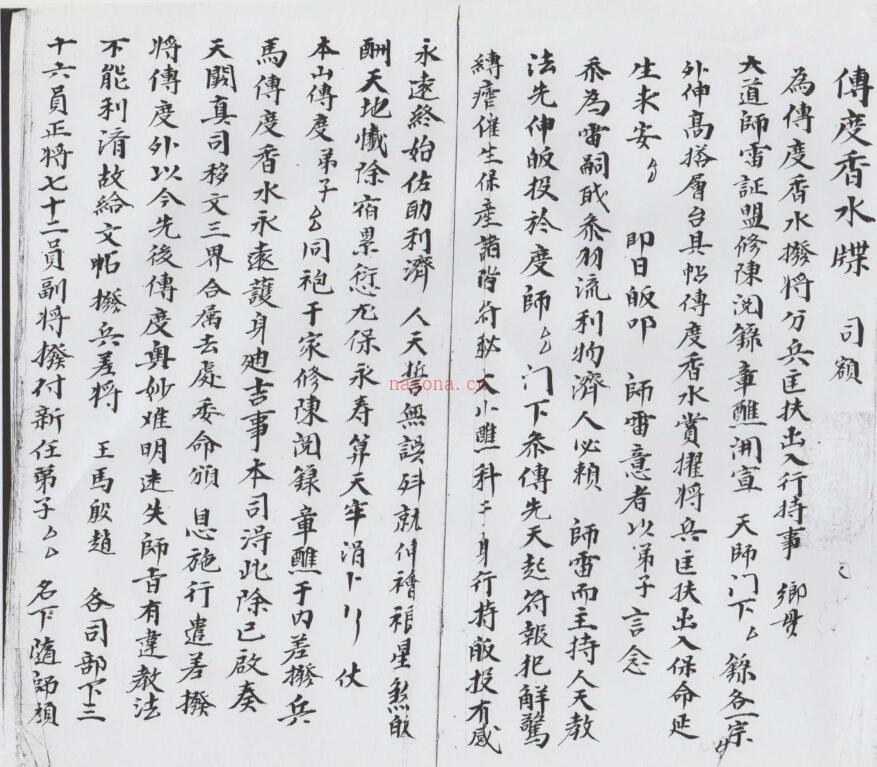 傳度香水牒 司額
為傳度香水撥將分兵匡扶出入行持事 鄉貫
大道師雷証盟修陳閱籙章醮開宣 天師門下 籙各一宗
外伸髙搭層台具帖傳度香水賞擢將兵匡扶出入保命延
生求安 即日皈叩 師雷意者以弟子言念
忝為雷嗣 忝羽流利物濟人必頼 師雷而主持人天教
法先伸皈投於度師 門下叅傳先天起符報犯觧驚
縛痞催生保產諸階符秘大小醮科于身行持皈投有感
永遠終始佐助利濟 人天誓無誤 就伸禬禳星煞皈
酬天地懺除宿累愆尤保永寿算天牢涓卜 仗
本山傳度弟子 同袍于家修陳閱籙章醮于内差撥兵
馬傳度香水永遠護身廸吉事本司得此除已啟奏
天闕真司移文三界合屬去處委命頒 恩施行遣差撥
將傳度外以今先後傳度奥妙难明迷失師旨有違教法
不能利濟故給文帖撥兵差將 王馬殷趙 各司部下三
十六員正将七十二員副将撥付新任弟子 名下隨師
nasona.cn